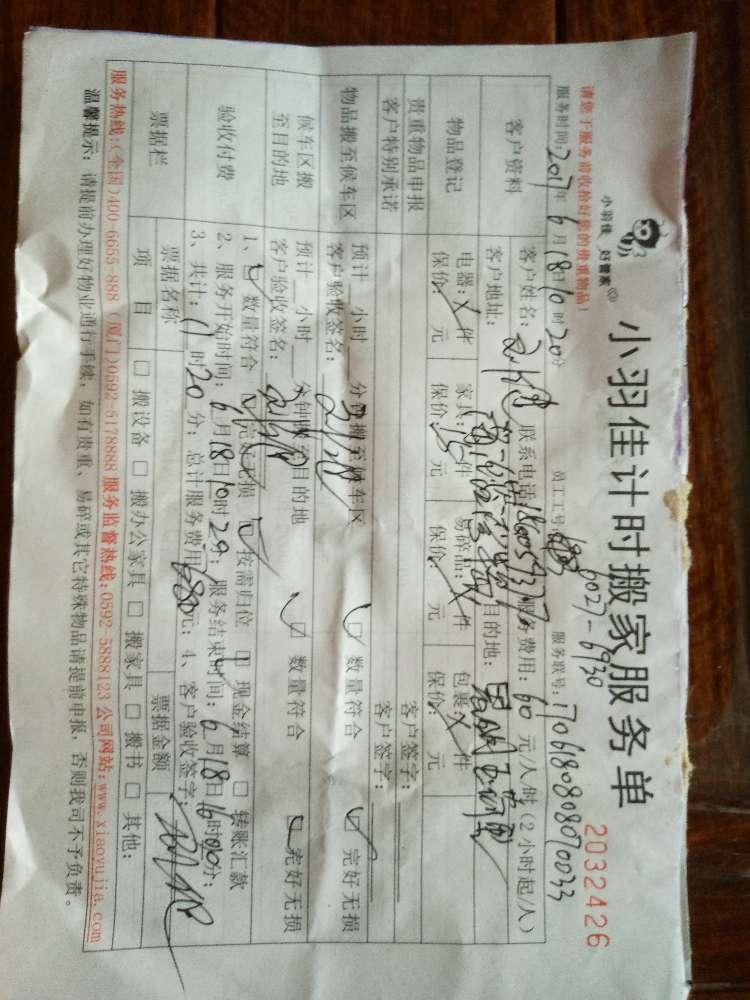 小羽佳 好管家
小羽佳计时搬家服务单
2032426
请您于服务前收拾好您的贵重物品！
员工工号： 6027-6930 服务联号：
服务时间：2017年6月18日10时20分
客户资料 客户姓名： 联系电话 服务费用：60元/人/时(2小时起/人)
客户地址： 目的地：
物品登记 电器： 件 家具： 件 易碎品： 件 包裹： 件
保价： 元 保价： 元 保价： 元 保价： 元
贵重物品申报 客户签字：
客户特别承诺 客户签字：
物品搬至候车区 预计 小时 分钟搬至候车区 数量符合 完好无损
客户验收签名：
候车区搬至目的地 预计 小时 分钟搬至目的地 数量符合 完好无损
客户验收签名：
验收付费 1、 数量符合 完好无损 按需归位 现金结算 转账汇款
2、服务开始时间：6月18日10时29分；服务结束时间：6月18日16时00分；
3、共计： 时20分；总计服务费用 元；4、客户验收签字：
票据栏 票据名称 票据金额
项目 搬设备 搬办公家具 搬家具 搬书 其他：
服务热线：(全国)400-6655-888 (厦门)0592-5178888 服务监督热线：0592-5888123 公司网站：www.xiaoyujia.com
温馨提示：请提前办理好物业通行手续，如有贵重、易碎或其它特殊物品请提前申报，否则我司不予负责。